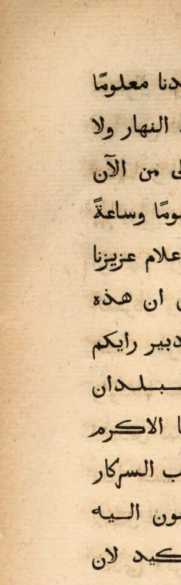 دنا معلومًا
النهار ولا
من الآن
ومًا وساعةً
علام عزيزنا
ان هذه
دبير رايكم
بلدان
الاكرم
السركار
ون اليه
كيد لان